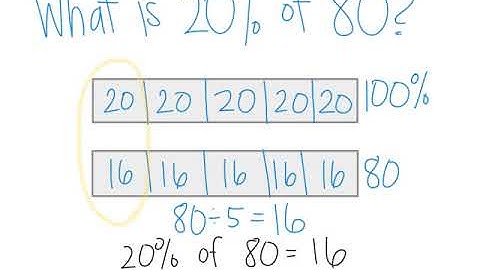 What is 20% of 80?
20 20 20 20 20 100%
16 16 16 16 16 80
80÷5=16
20% of 80=16